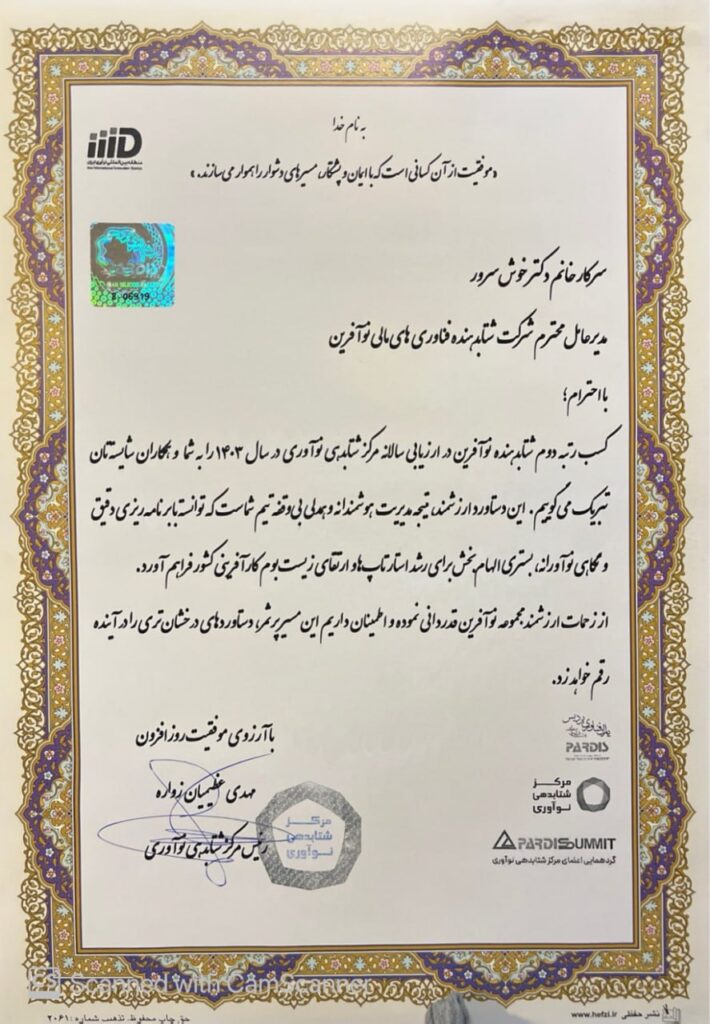 به نام خدا
«موفقیت از آن کسانی است که با ایمان و پشتکار، مسیرهای دشوار را هموار می سازند.»
iiiD
منطقه بین‌المللی نوآوری ایران
06919
سرکار خانم دکتر خوش سرور
مدیرعامل محترم شرکت شتابدهنده فناوری های مالی نوآفرین
با احترام؛
کسب رتبه دوم شتابدهنده نوآفرین در ارزیابی سالانه مرکز شتابدهی نوآوری در سال ۱۴۰۳ را به شما و همکاران شایسته تان
تبریک می گوییم. این دستاورد ارزشمند، نتیجه مدیریت هوشمندانه و همدلی بی وقفه تیم شماست که توانسته با برنامه ریزی دقیق
و نگاهی نوآورانه، بستری الهام بخش برای رشد استارتاپ ها و ارتقای زیست بوم کارآفرینی کشور فراهم آورد.
از زحمات ارزشمند مجموعه نوآفرین قدردانی نموده و اطمینان داریم این مسیر پرثمر، دستاوردهای درخشان تری را در آینده
رقم خواهد زد.
با آرزوی موفقیت روز افزون
مهدی عظیمیان زواره
رئیس مرکز شتابدهی نوآوری
مرکز
شتابدهی
نوآوری
PARDIS
مرکز
شتابدهی
نوآوری
PARDISSUMMIT
گردهمایی اعضای مرکز شتابدهی نوآوری
Scanned with CamScanner
نشر حفظی www.hefzi.ir
حق چاپ محفوظ. تذهیب شماره: ۲۰۶۱